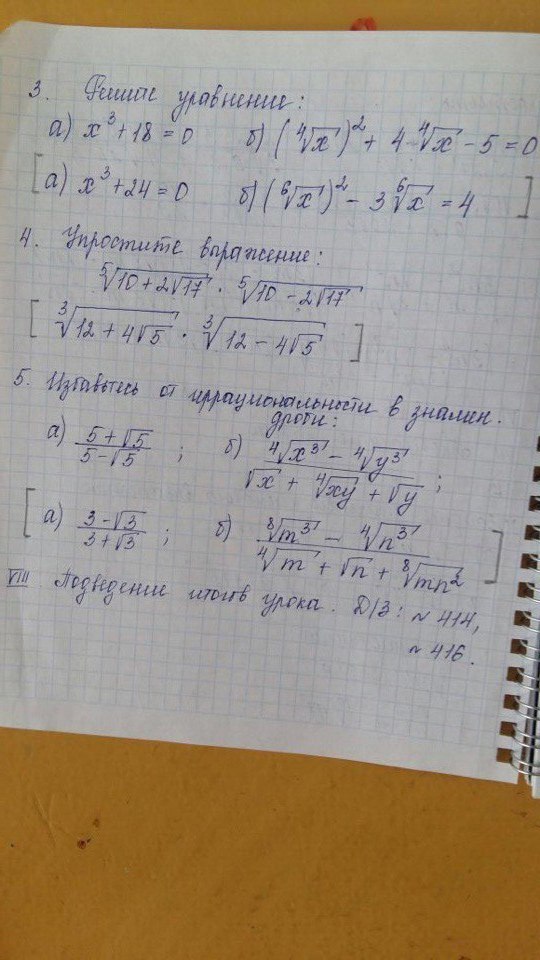 3. Решите уравнение:
а) x³ + 18 = 0 б) (⁴√x)² + 4 ⁴√x - 5 = 0
[а) x³ + 24 = 0 б) (⁶√x)² - 3 ⁶√x = 4]
4. Упростите выражение:
⁵√(10 + 2√17) · ⁵√(10 - 2√17)
[³√(12 + 4√5) · ³√(12 - 4√5)]
5. Избавьтесь от иррациональности в знамен. дроби:
а) (5 + √5)/(5 - √5); б) (⁴√x³ - ⁴√y³)/(√x + ⁴√xy + √y);
[а) (3 - √3)/(3 + √3); б) (⁸√m³ - ⁴√n³)/(⁴√m + √n + ⁸√mn²)]
VIII Подведение итогов урока. Д/З: ~ 414,
~ 416.